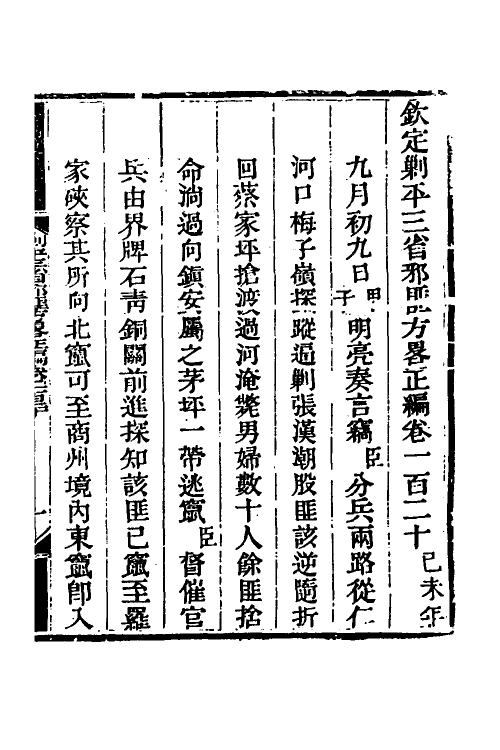 欽定剿平三省邪匪方畧正編卷一百二十己未年
九月初九日甲子明亮奏言竊臣分兵兩路從仁
河口梅子嶺探蹤追剿張漢潮股匪該逆隨折
回蔡家坪搶渡過河淹斃男婦數十人餘匪捨
命淌過向鎮安屬之茅坪一帶逃竄臣督催官
兵由界牌石靑銅關前進探知該匪已竄至羅
家硤察其所向北竄可至商州境內東竄卽入